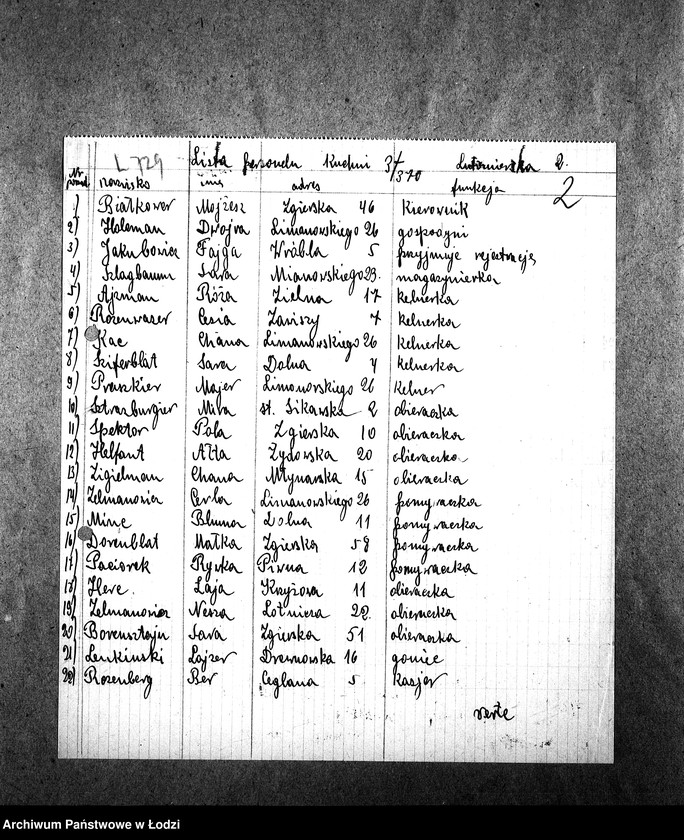 L 729 Lista personelu Kuchni 37/370 Lutomierska 2.
2
Nr porząd nazwisko imię adres funkcja
1) Białkower Mojżesz Zgierska 46 Kierownik
2) Holcman Dwojra Limanowskiego 26 gospodyni
3) Jakubowicz Fajga Wróbla 5 przyjmuje rejestrację
4) Szlagbaum Sara Mianowskiego 23. magazynierka
5) Ajzman Róża Zielna 17 kelnerka
6) Rozenwaser Cesia Zawiszy 7 kelnerka
7) Kac Chana Limanowskiego 26 kelnerka
8) Sziferblat Sara Dolna 4 kelnerka
9) Praszkier Majer Limanowskiego 26 kelner
10) Sztrasburgier Mira st. Sikawska 2 obieraczka
11) Spektor Pola Zgierska 10 obieraczka
12) Helfant Ałta Żydowska 20 obieraczka
13) Zigielman Chana Młynarska 15 obieraczka
14) Zelmanowicz Cerla Limanowskiego 26 pomywaczka
15) Minc Bluma Dolna 11 pomywaczka
16) Dorenblat Małka Zgierska 58 pomywaczka
17) Paciorek Rywka Piwna 12 pomywaczka
18) Herc. Łaja Krzyżowa 11 obieraczka
19) Zelmanowicz Nesza Lotnicza 22. obieraczka
20) Borensztajn Sara Zgierska 51 obieraczka
21) Lenkinski Lajzer Drewnowska 16 goniec
22) Rozenberg Ber Ceglana 5 kasjer
verte
Archiwum Państwowe w Łodzi